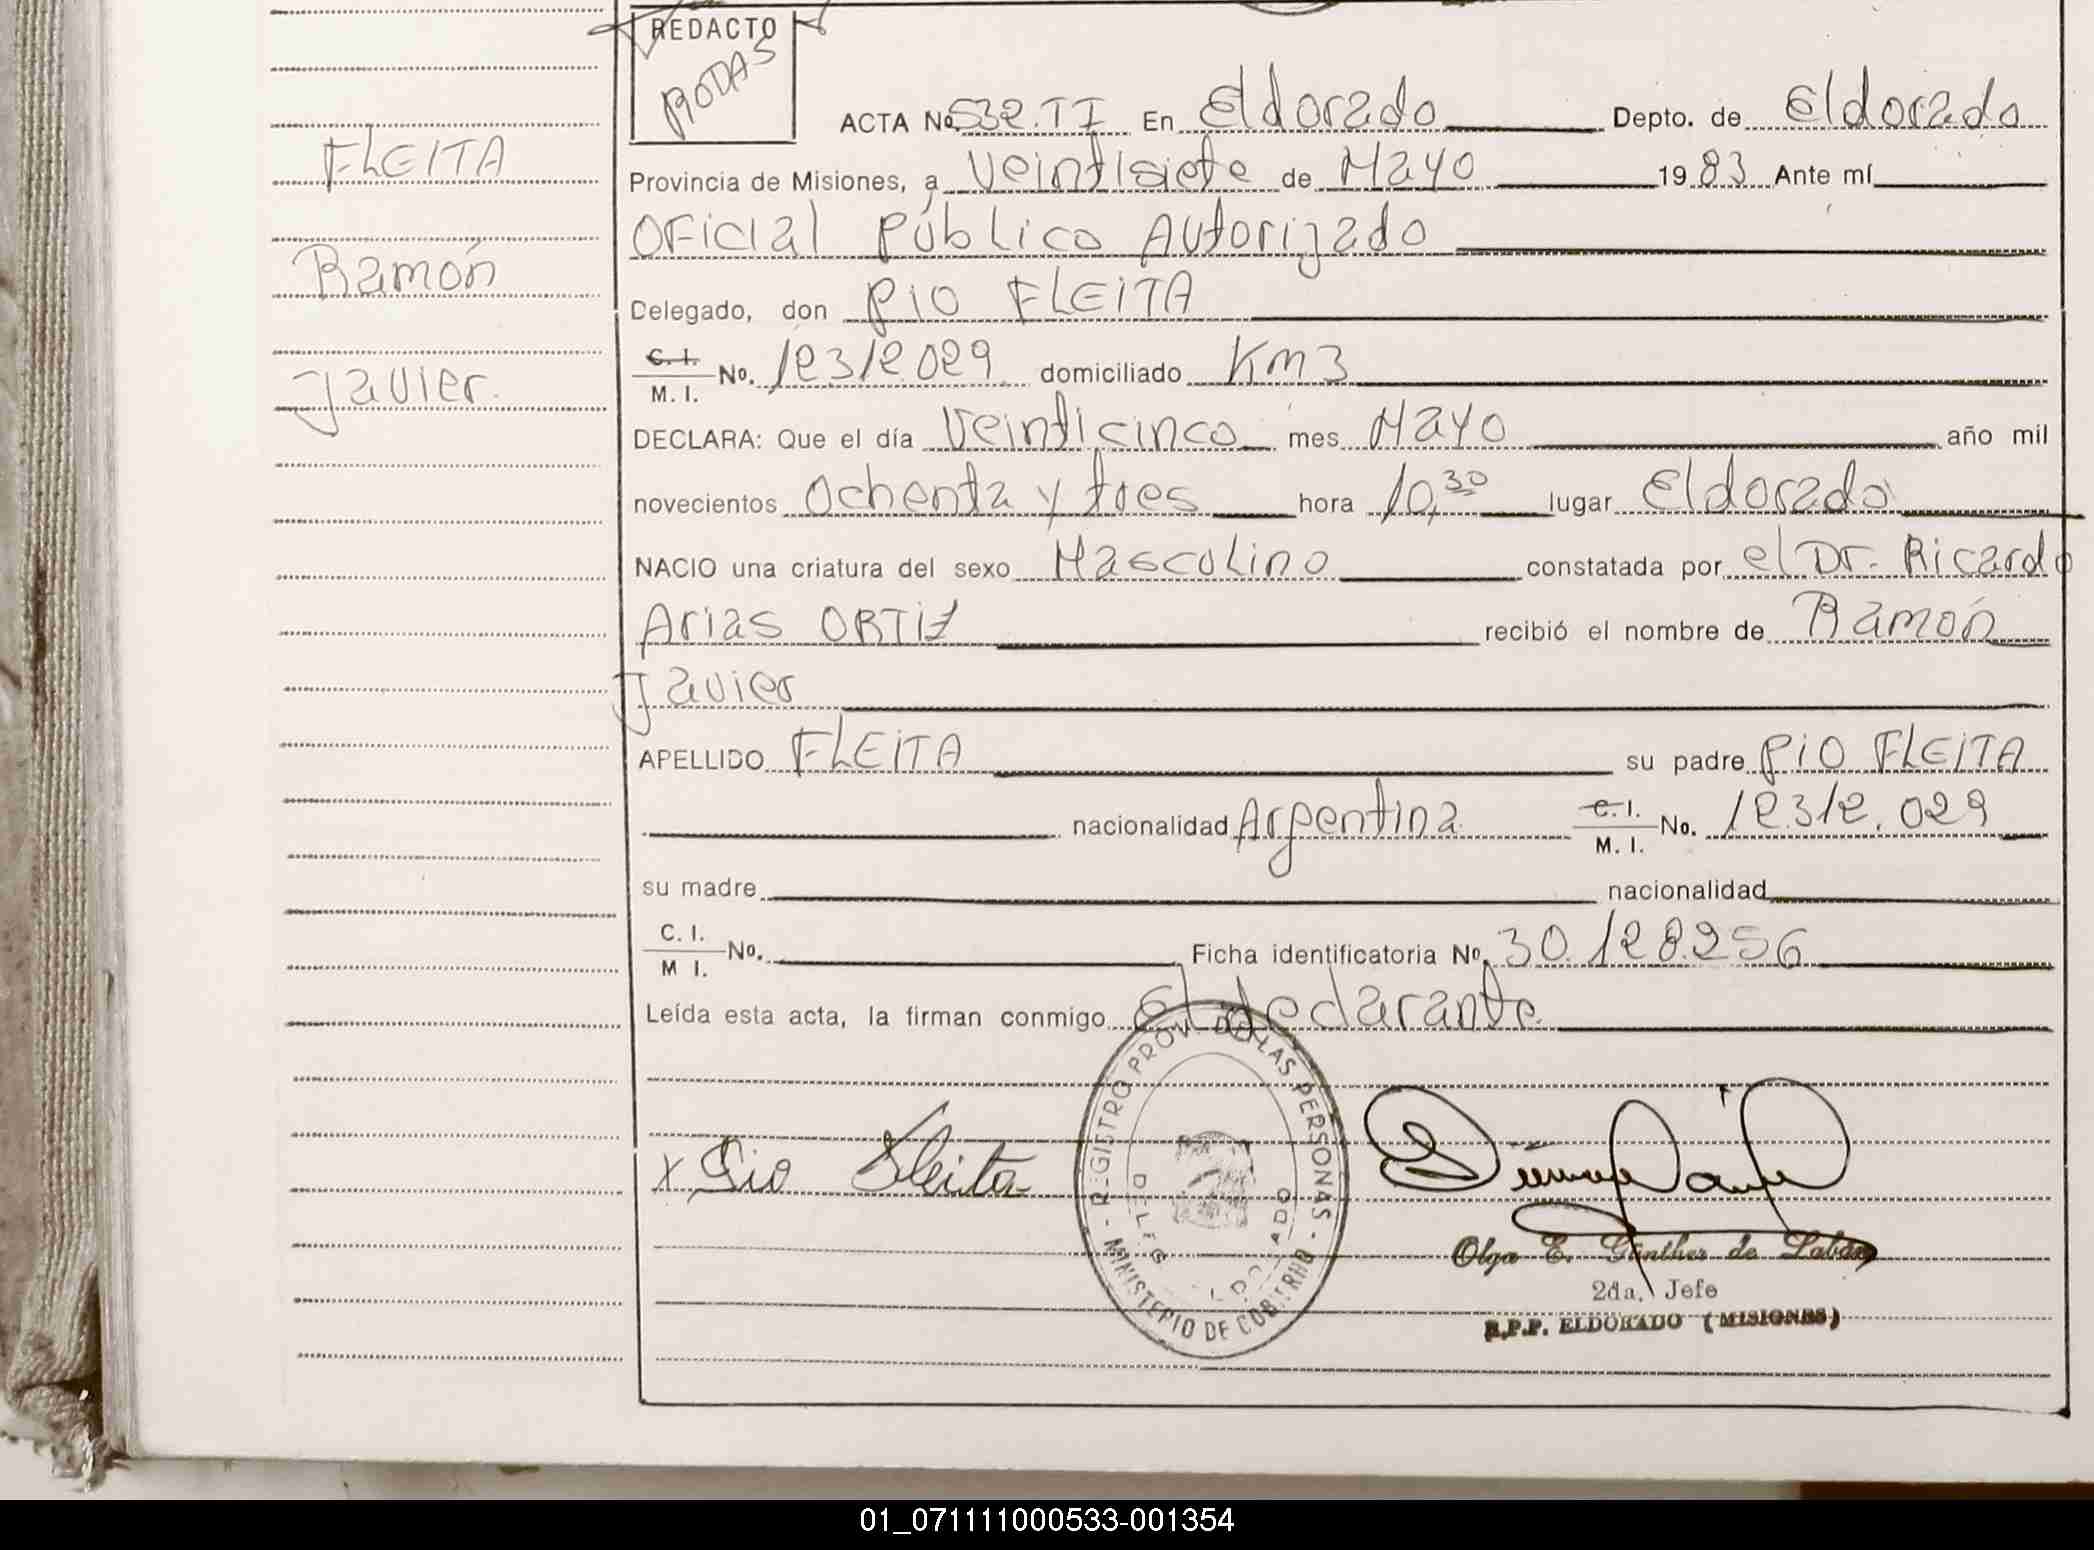 REDACTO
RODAS
ACTA No. 532.TI En Eldorado Depto. de Eldorado
Provincia de Misiones, a veintisiete de Mayo 1983 Ante mí
Oficial Público Autorizado
Delegado, don PIO FLEITA
C. I. M. I. No. 12312.029 domiciliado Km 3
DECLARA: Que el día Veinticinco mes Mayo año mil
novecientos Ochenta y tres hora 10,30 lugar Eldorado
NACIO una criatura del sexo Masculino constatada por el Dr. Ricardo
Arias ORTIZ recibió el nombre de Ramón
Javier
APELLIDO FLEITA su padre PIO FLEITA
nacionalidad Argentina C. I. M. I. No. 12312.029
su madre nacionalidad
C. I. M I. No. Ficha identificatoria No. 30.128.256
Leída esta acta, la firman conmigo el declarante.
x Pio Fleita
REGISTRO PROV. DE LAS PERSONAS - MINISTERIO DE GOBIERNO -
Olga E. Günther de Labán
2da. Jefe
R.P.P. ELDORADO (MISIONES)
FLEITA
Ramón
Javier.
01_071111000533-001354